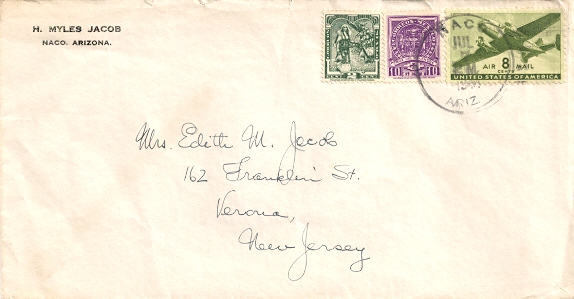 H. MYLES JACOB
NACO, ARIZONA.
10 10
AIR 8 MAIL
CENTS
UNITED STATES OF AMERICA
NACO
JUL
ARIZ.
Mrs. Edith M. Jacob
162 Franklin St.
Verona,
New Jersey